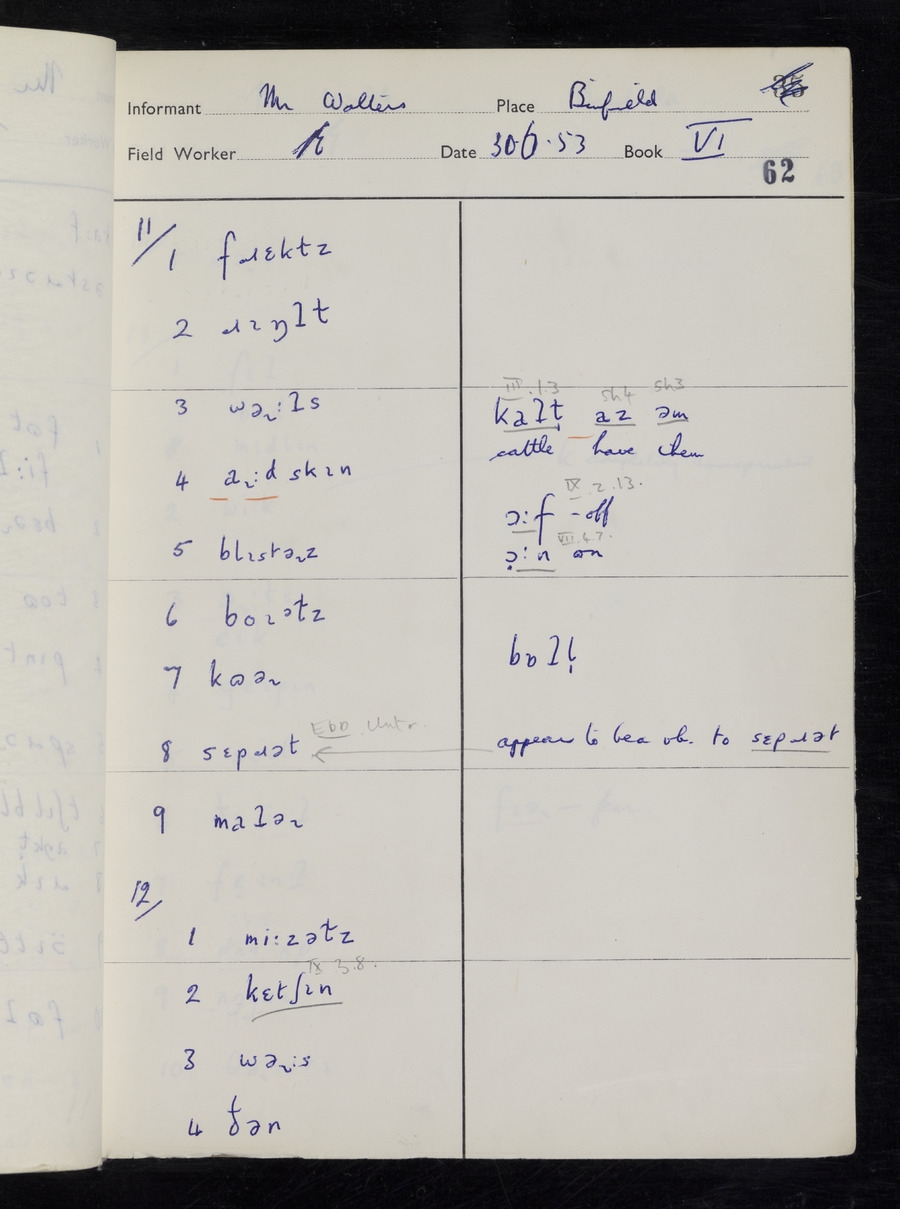 Informant Mr Walters Place Binfield
Field Worker Date 30·6·53 Book VI
62
11/
1 fɹɛktz
2 ɹɪŋɫt
3 wəʴ:ɫs
III.1.3 sh4 sh3
kaɫt az əm
cattle have them
4 aʴ:d skɪn
IX 2.13.
ɔ:f - off
5 blɪstəʴz
VII.4.7.
ɔ̣:n on
6 boɪətz
7 kɒəʴ
8 sɛpɹət
EDD
appears to be a vb. to sɛpɹət
9 maɫəʴ
12/
1 mi:zətz
IX 3.8.
2 kɛtʃɪn
3 wəʴ:s
4 ðən